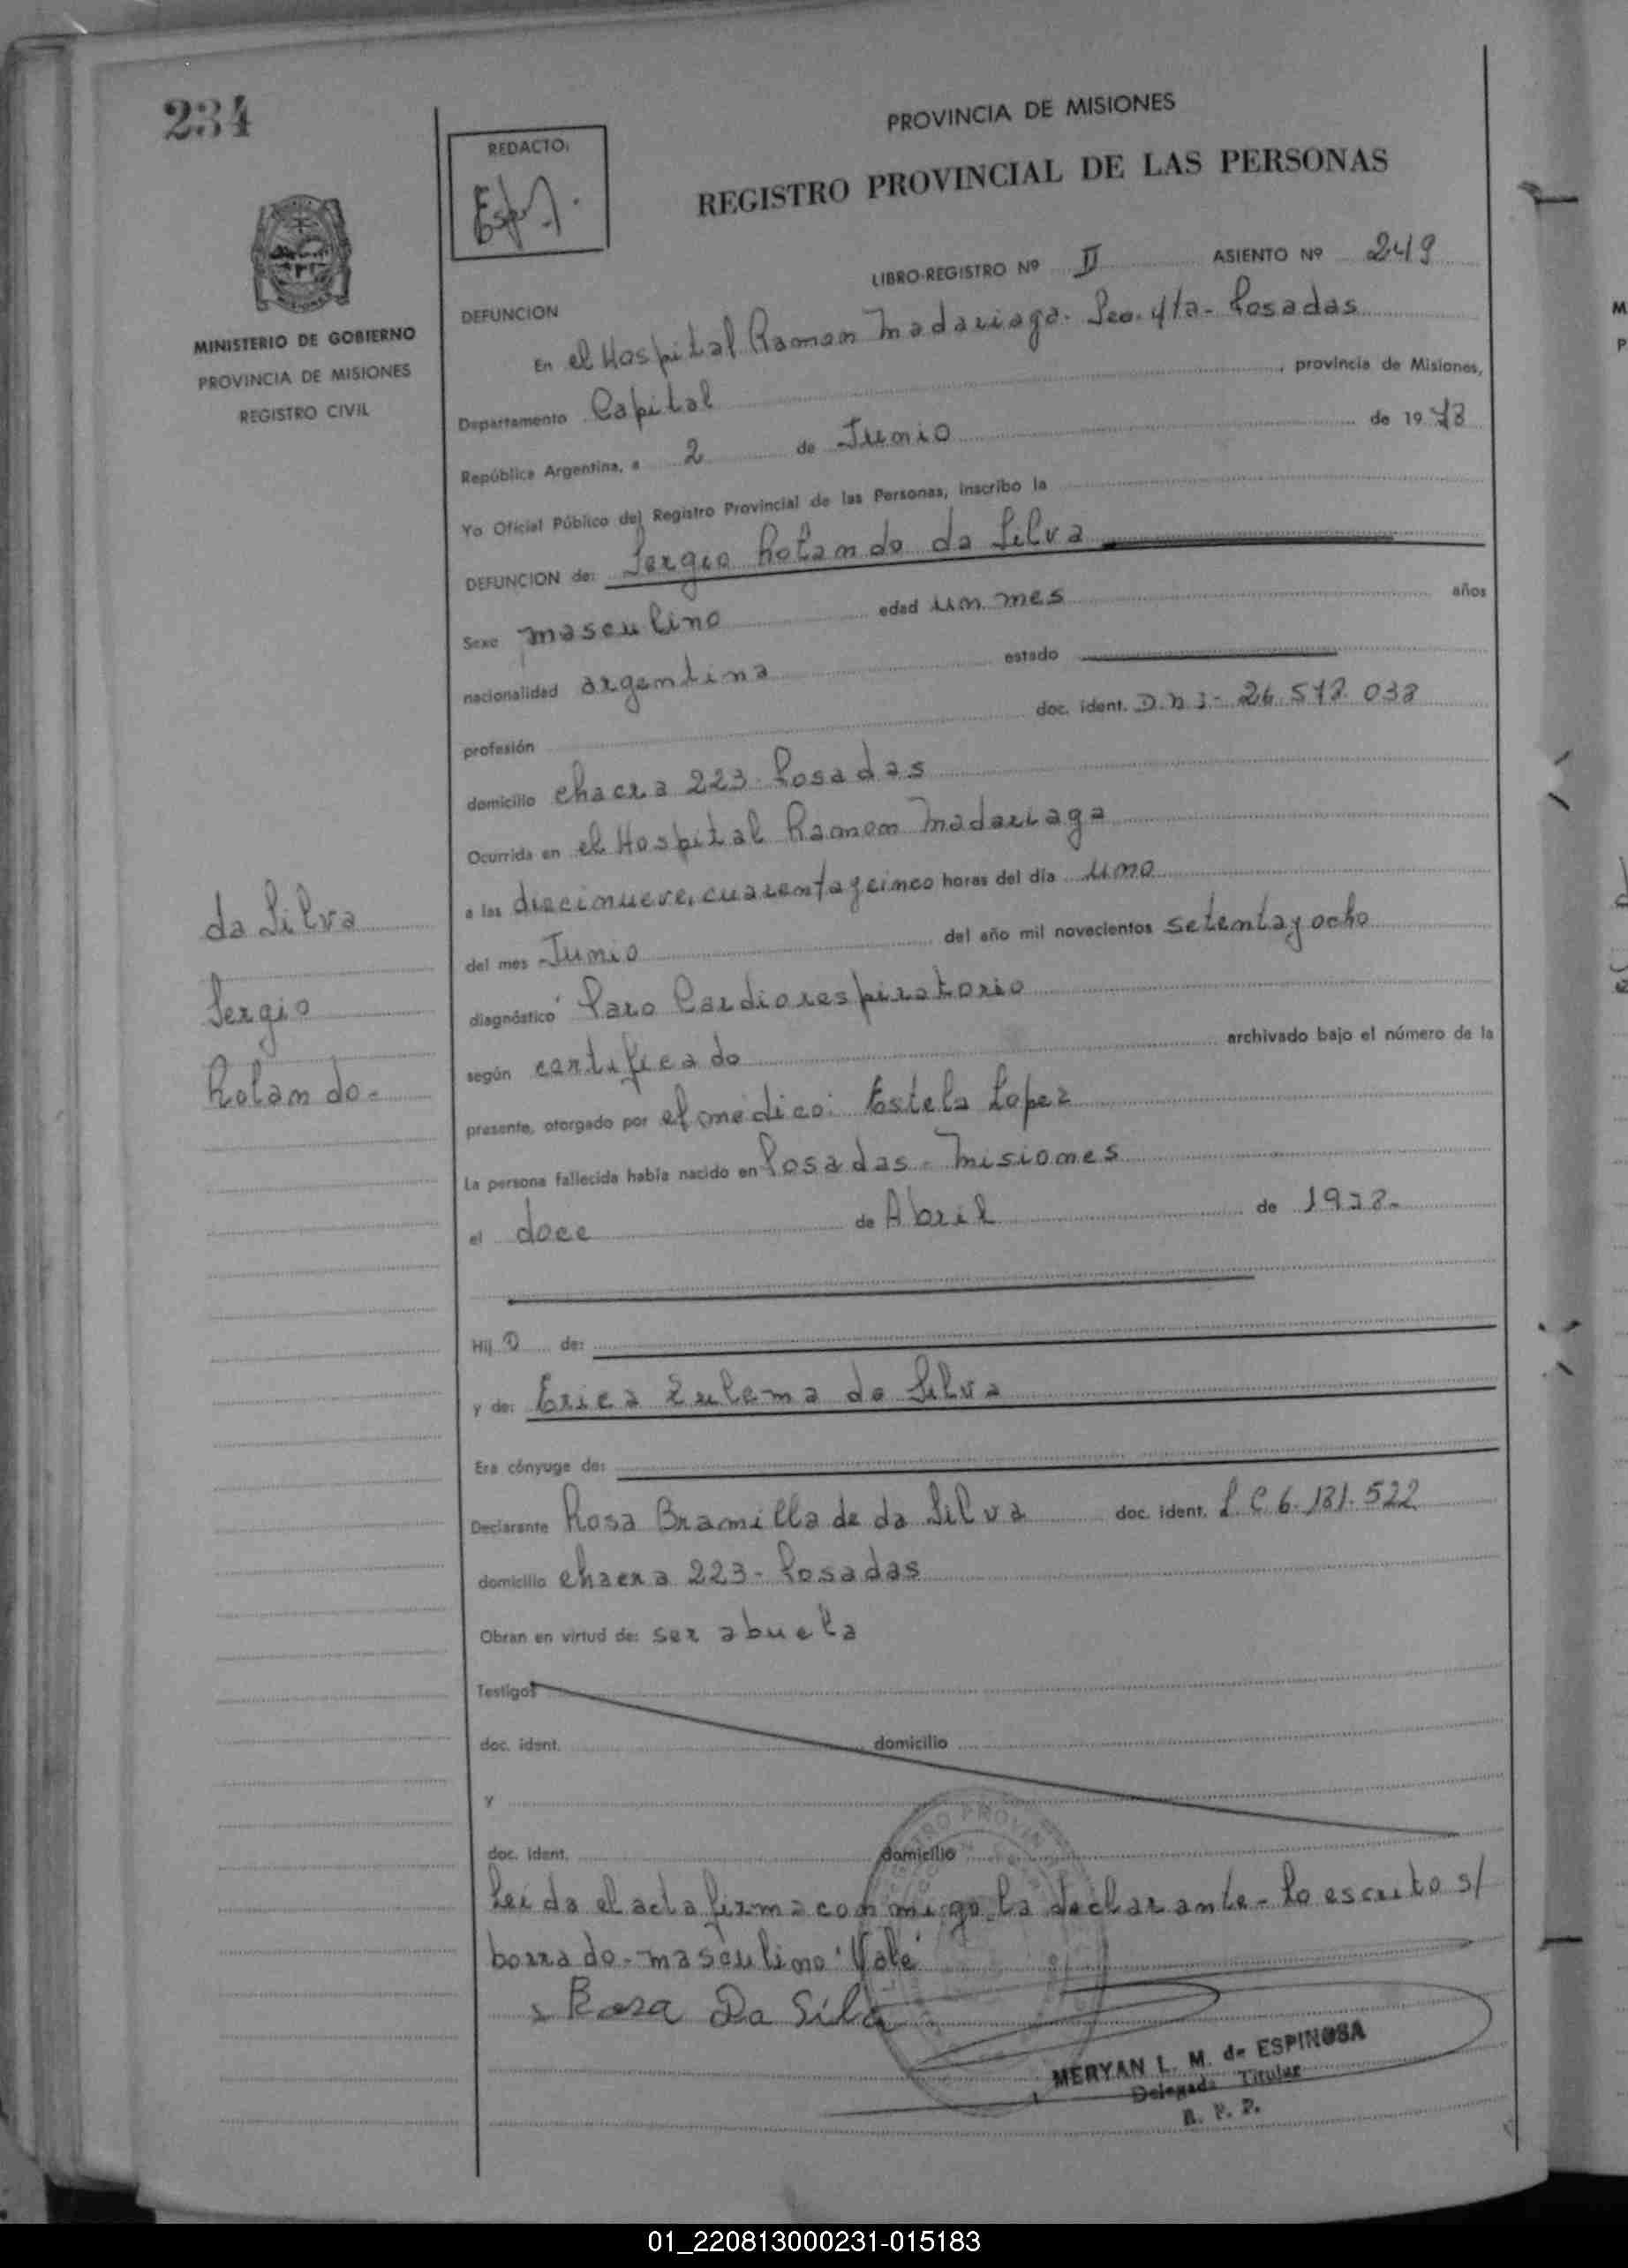 234
MINISTERIO DE GOBIERNO
PROVINCIA DE MISIONES
REGISTRO CIVIL
da Silva
Sergio
Rolando-
REDACTO:
PROVINCIA DE MISIONES
REGISTRO PROVINCIAL DE LAS PERSONAS
LIBRO-REGISTRO Nº II ASIENTO Nº 249
DEFUNCION
En el Hospital Ramon Madariaga- Sec. 4ta- Posadas
Departamento Capital , provincia de Misiones,
República Argentina, a 2 de Junio de 1978
Yo Oficial Público del Registro Provincial de las Personas, inscribo la
DEFUNCION de: Sergio Rolando da Silva
Sexo masculino edad un mes años
nacionalidad argentina estado
profesión doc. ident. D.N.I- 26.578.038
domicilio chacra 223- Posadas
Ocurrida en el Hospital Ramon Madariaga
a las diecinueve, cuarenta y cinco horas del día uno
del mes Junio del año mil novecientos setenta y ocho
diagnóstico Paro Cardiorespiratorio
según certificado archivado bajo el número de la
presente, otorgado por el médico: Estela Lopez
La persona fallecida había nacido en Posadas- Misiones
el doce de Abril de 1978-
Hij o de:
y de: Erica Zulema da Silva
Era cónyuge de:
Declarante Rosa Bramilla de da Silva doc. ident. L.C 6.181.522
domicilio chacra 223- Posadas
Obran en virtud de: ser abuela
Testigos
doc. ident. domicilio
y
doc. ident. domicilio
Leída el acta firma conmigo la declarante- Lo escrito s/
borrado- masculino "Vale"
Rosa Da Silva
MERYAN L. M. de ESPINOSA
Delegada Titular
R. P. P.
01_220813000231-015183